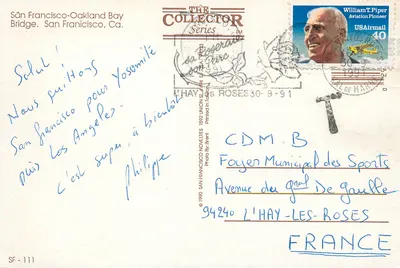 San Francisco-Oakland Bay
Bridge. San Francisco, Ca.
THE
COLLECTOR
Series
William T. Piper
Aviation Pioneer
USAirmail
40
L'HAY les ROSES 30-9-91
Salut!
Nous quittons
San Francisco pour Yosemite
puis Los Angeles.
C'est super, à bientôt
Philippe
CDM.B
Foyer Municipal des Sports
Avenue du gnal De Gaulle
94240 L'HAY-LES-ROSES
FRANCE
SF - 111